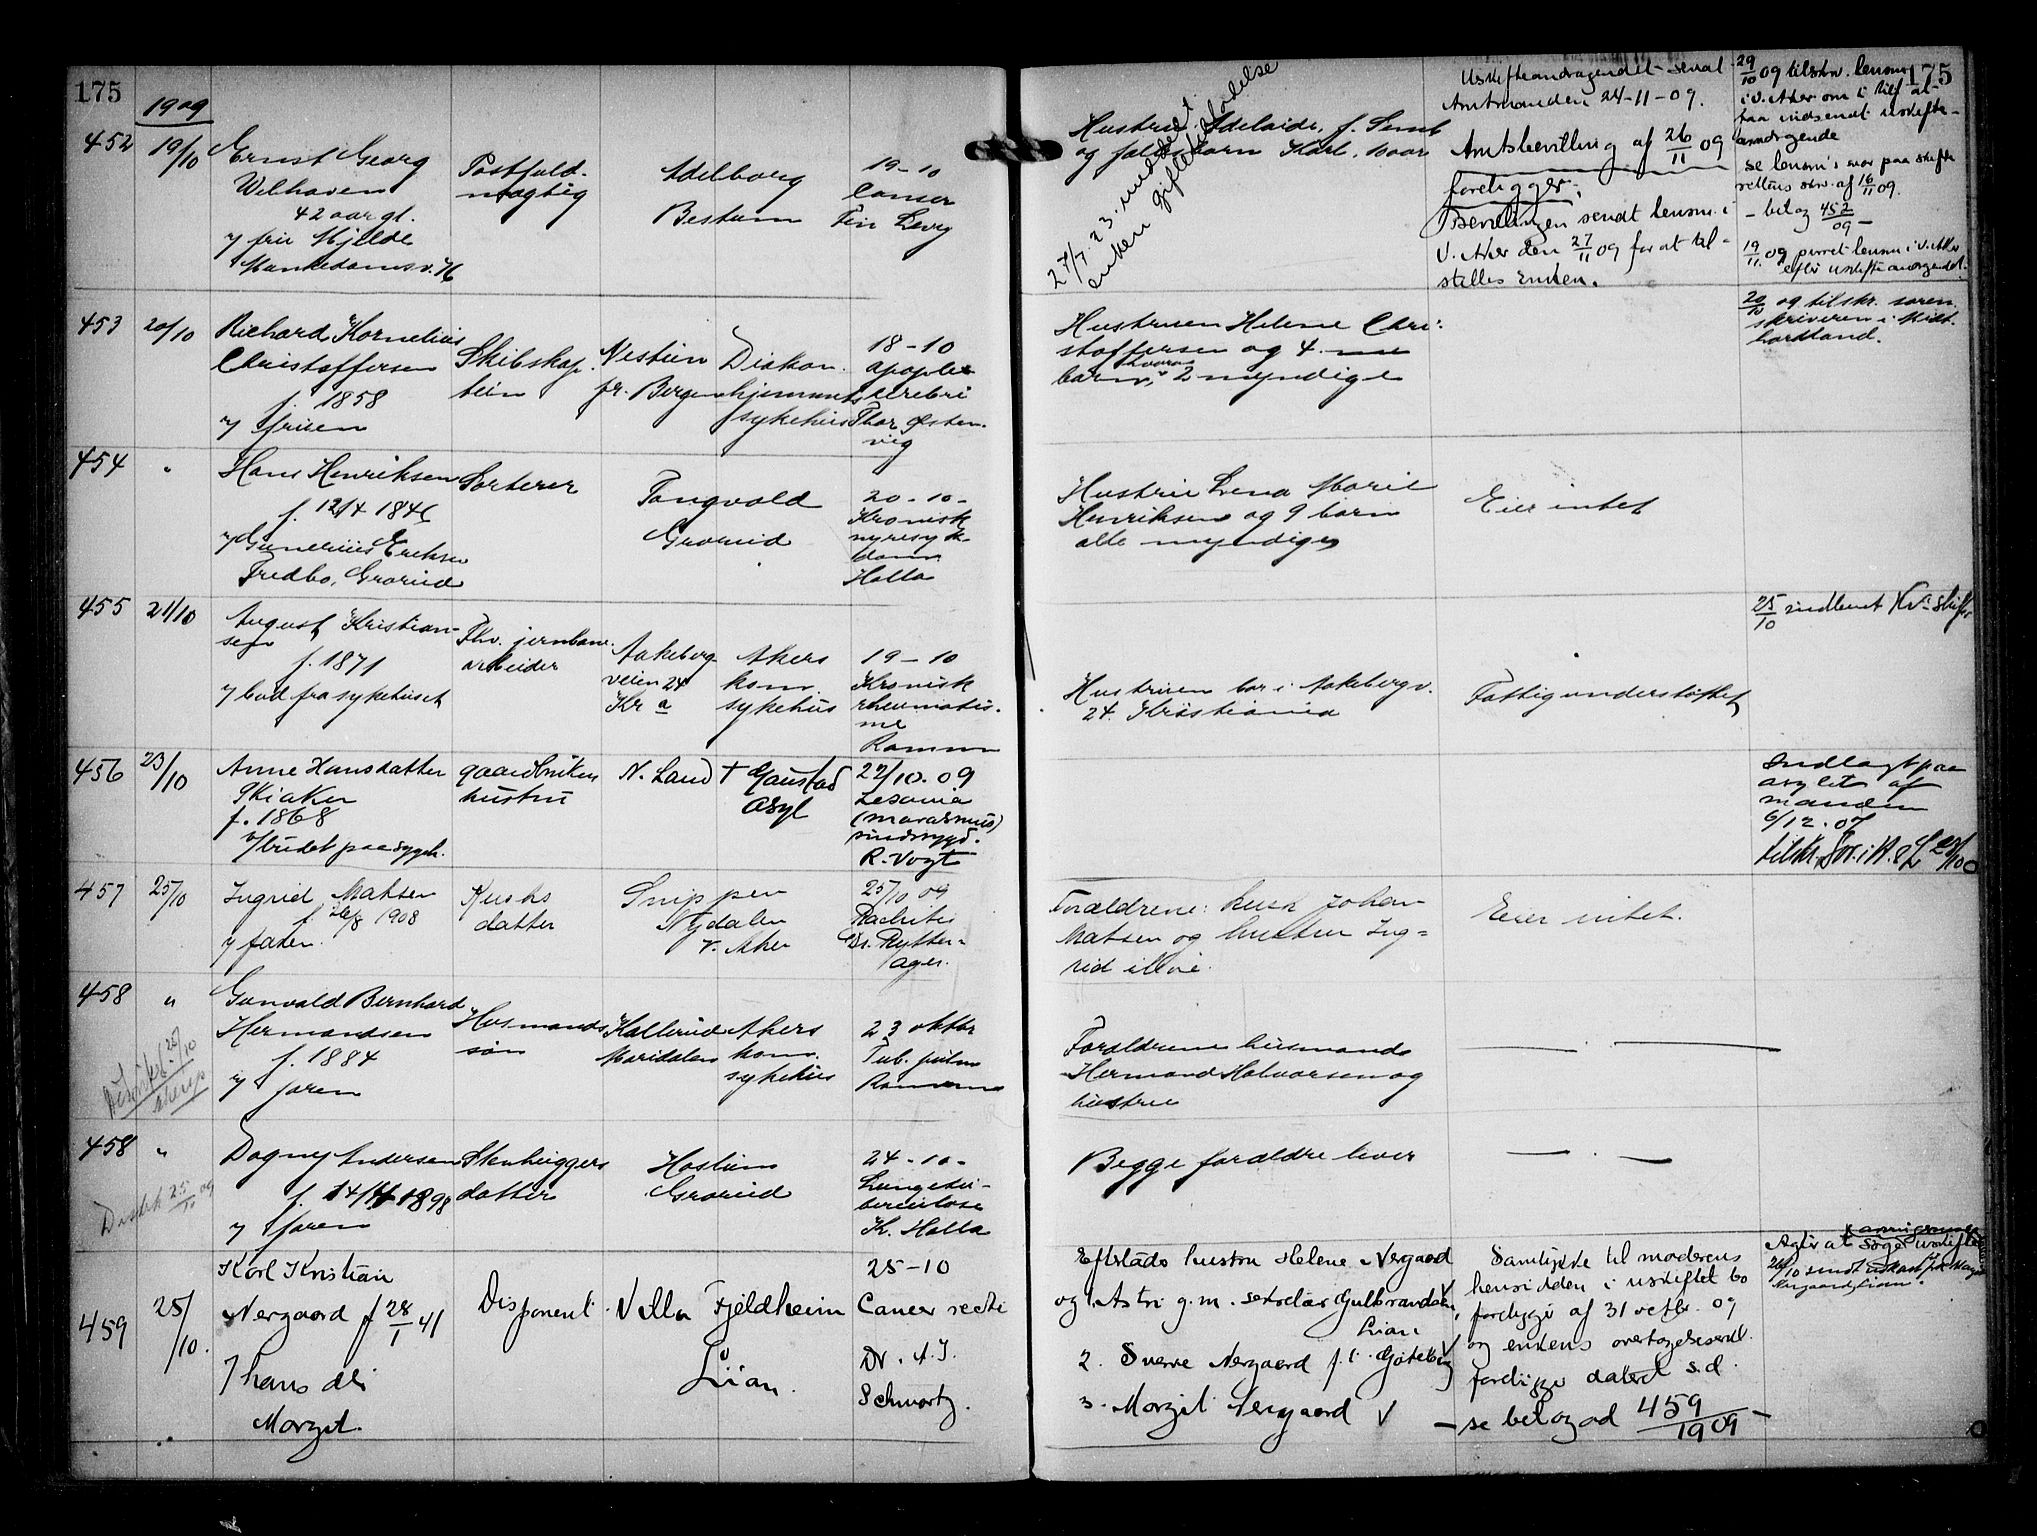 175
175
1909
452
19/10
Ernst Georg
Welhaven
42 aar gl.
v/ frk Kjelde
Munkedamsv. 76
Postfuld-
mægtig
Adelborg
Bestum
19-10
Cancer
Fin Levy
Hustru Adelaide, f.
og fællesbarn Karl,
27/7. 23. meddelt
enken
Uskifteandragendet sendt
Amtmanden 24-11-09.
Amtsbevilling af 26/11 09
foreligger.
Bevillingen sendt lensm. i
V. Aker den 27/11 09 for at til-
stilles Enken.
29/10 09 tilskr. lensm.
i V. Aker om i tilf at
faa indsendt uskifte-
andragende
se lensm's svar paa skifte
rettens skr. af 16/11 09.
- bel og 452/09 -
19/11 09 purret lensm i V. Aker
efter uskifteandragendet.
453
20/10
Richard Kornelius
Christoffersen
f. 1858
v/ fruen
Skibskap-
tein
Nesttun
pr. Bergen
Diakon.
hjemmets
sykehus
18-10
apoplex
cerebri
Thor Østen-
vig
Hustruen Helene Chri-
stoffersen og 4
børn, hvorav 2 myndige
20/10 09 tilskr. soren-
skriveren i Midt-
hordland.
454
"
Hans Henriksen
f. 12/4 1846
v/ Gunerius Eriksen
Fredbo, Grorud
Sorterer
Tongvold
Grorud
20-10-
Kronisk
nyresyk-
dom
Holla
Hustru Lena Marie
Henriksen og 9 børn
alle myndige
Eier intet
455
21/10
August Kristian-
sen
f. 1871
v/ bud fra sykehuset
Fhv. jernbane-
arbeider
Aakeberg
veien 24
Kr a
Akers
kom.
sykehus
19-10
Kronisk
rheumatis-
me
Ramm
Hustruen bor i Aakebergv.
24. Kristiania
Fattigunderstøttet
25/10 indberet Kr.a Skifter
456
23/10
Anne Hansdatter
Skiaker
f. 1868
v/ budet paa sygeh.
gaardbruker
hustru
N. Land
+ Gaustad
Asyl
22/10. 09
(marasmus)
sindssygd.
R. Vogt
Indlagt paa
asylet af
manden
6/12. 07
tilskr. Sor. i H. & L 23/10 0
457
25/10
Ingrid Matsen
f. 26/8 1908
v/ faren.
Kusks
datter
Snippen
Nydalen
V. Aker
25/10 09
Rachitis
Dr. Rytter-
ager.
Forældrene: kusk Johan
Matsen og hustru Ing-
rid ilive.
Eier intet.
458
"
Gunvald Bernhard
Hermandsen
f. 1884
v/ faren
Husmands
søn
Kallerud
Maridalen
Akers
kom.
sykehus
23 oktbr
Tub. pulm
Ramm
Forældrene husmand
Hermand Halvorsen og
hustru
458
"
Dagny Andersen
f. 14/4 1898
v/ faren
Stenhuggers
datter
Haslum
Grorud
24-10-
Lungetu-
berculose
K. Holla
Begge forældre lever
459
25/10.
Karl Kristian
Nergaard f 28/1 41
v/ hans dtr
Margit.
Disponent
Villa Fjeldheim
Lian.
25-10
Cancer recti
Dr. A. J.
Schwartz.
Efterlads hustru Helene Nergaard
og 1. Astri g. m. sekretær Gulbrandsen,
Lian
2. Sverre Nergaard f. t. Gøteborg
3. Margit Nergaard v
Samtykke til moderens
hensidden i uskiftet bo
foreligger af 31 octbr. 09
og enkens overtagelseserkl.
foreligger dateret s.d.
- se bel og ad 459/1909 -
Agter at søge uskifte